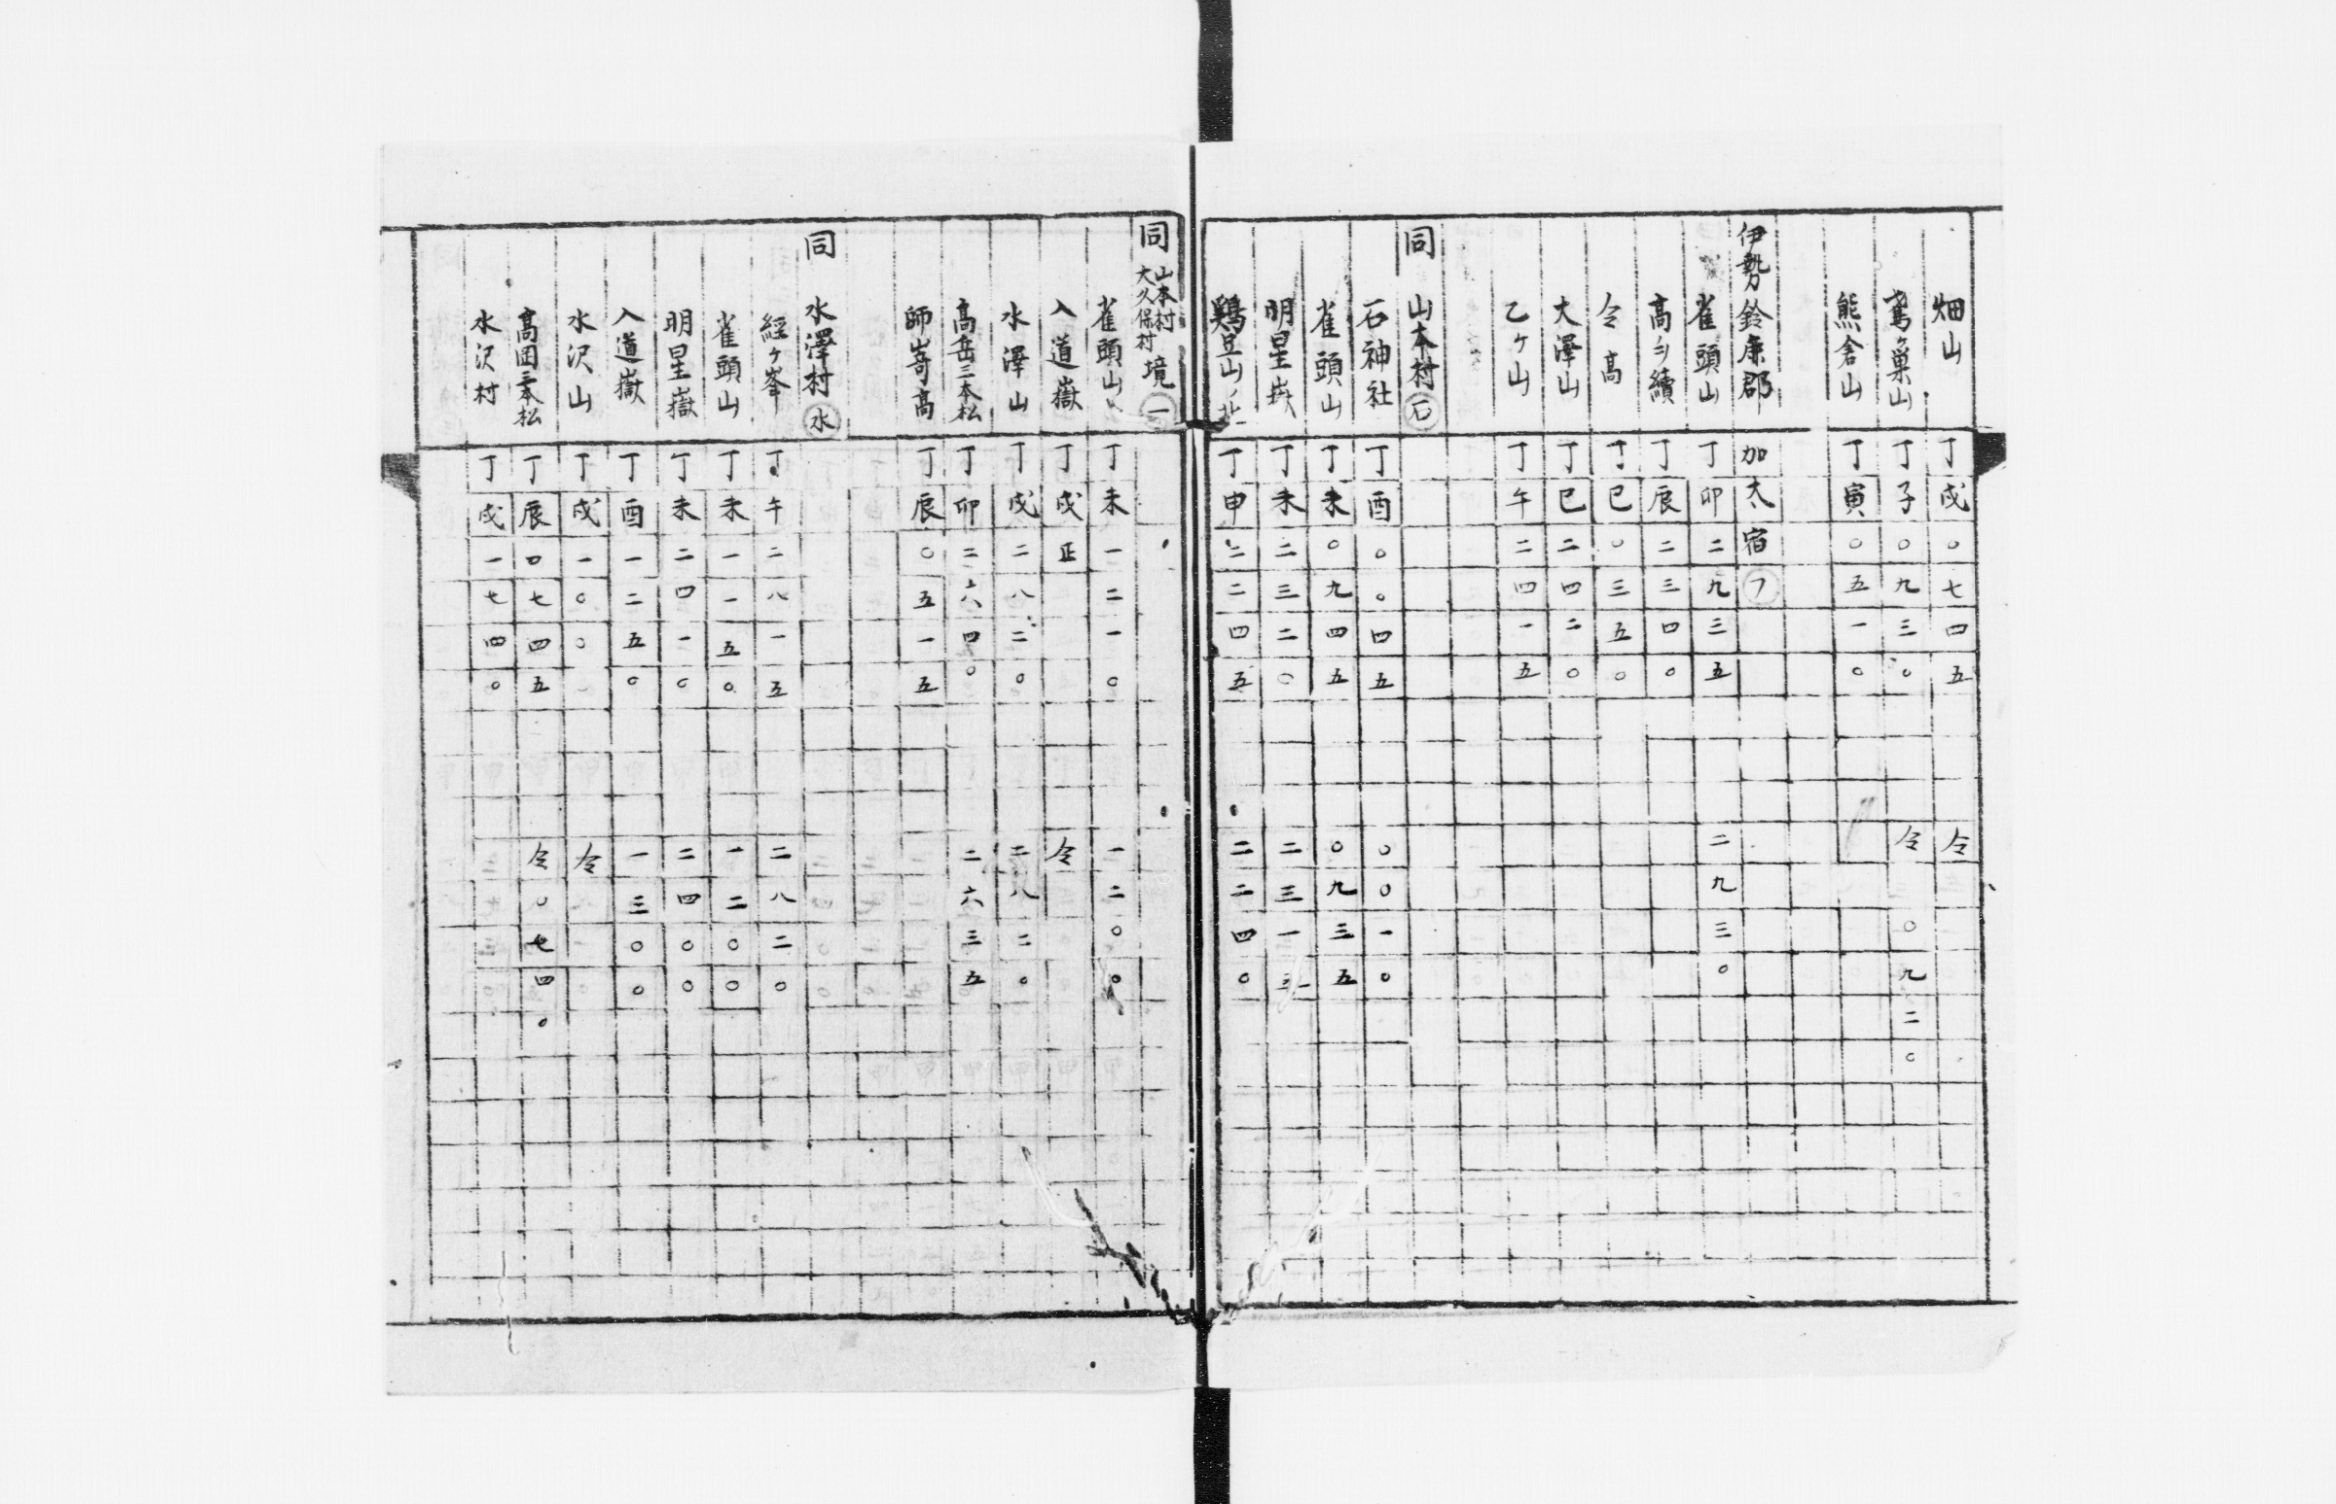 畑山 丁戌〇七四五 仝
鳶ヶ巣山 丁子〇九三〇 仝〇九二〇
熊倉山 丁寅〇五一〇
伊勢鈴鹿郡加太宿
雀頭山 丁卯二九三五 二九三〇
髙ヲ續 丁辰二三四〇
仝髙 丁巳〇三五〇
大澤山 丁巳二四二〇
乙ヶ山 丁午二四一五
同 山本村 石
石神社 丁酉〇〇四五 〇〇一〇
雀頭山 丁未〇九四五 〇九三五
明星嶽 丁未二三二〇 二三一
鶏足山ノ北 丁申二二四五 二二四〇
同 山本村 大久保村 境 一
雀頭山 丁未一二一〇 一二〇〇
入道嶽 丁戌正 仝
水澤山 丁戌二八二〇 二八二〇
髙岳三本松 丁卯二六四〇 二六三五
師嵜髙 丁辰〇五一五
同 水澤村 水
經ヶ峯 丁午二八一五 二八二〇
雀頭山 丁未一一五〇 一二〇〇
明星嶽 丁未二四一〇 二四〇〇
入道嶽 丁酉一二五〇 一三〇〇
水沢山 丁戌一〇〇 仝
髙岡三本松 丁辰〇七四五 仝〇七四〇
水沢村 丁戌一七四〇